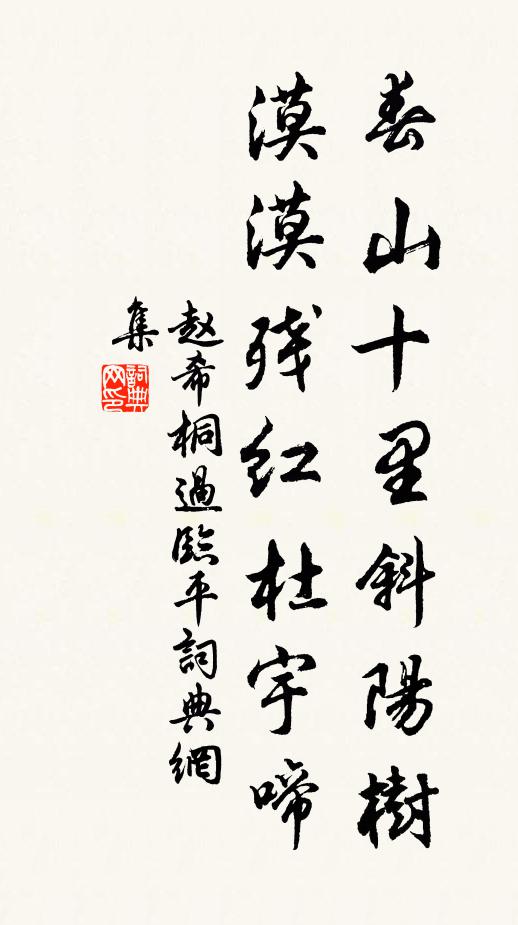 春山十里斜陽樹
漠漠残红杜宇啼
赵希桐過臨平詞典網
集
詞典
网印